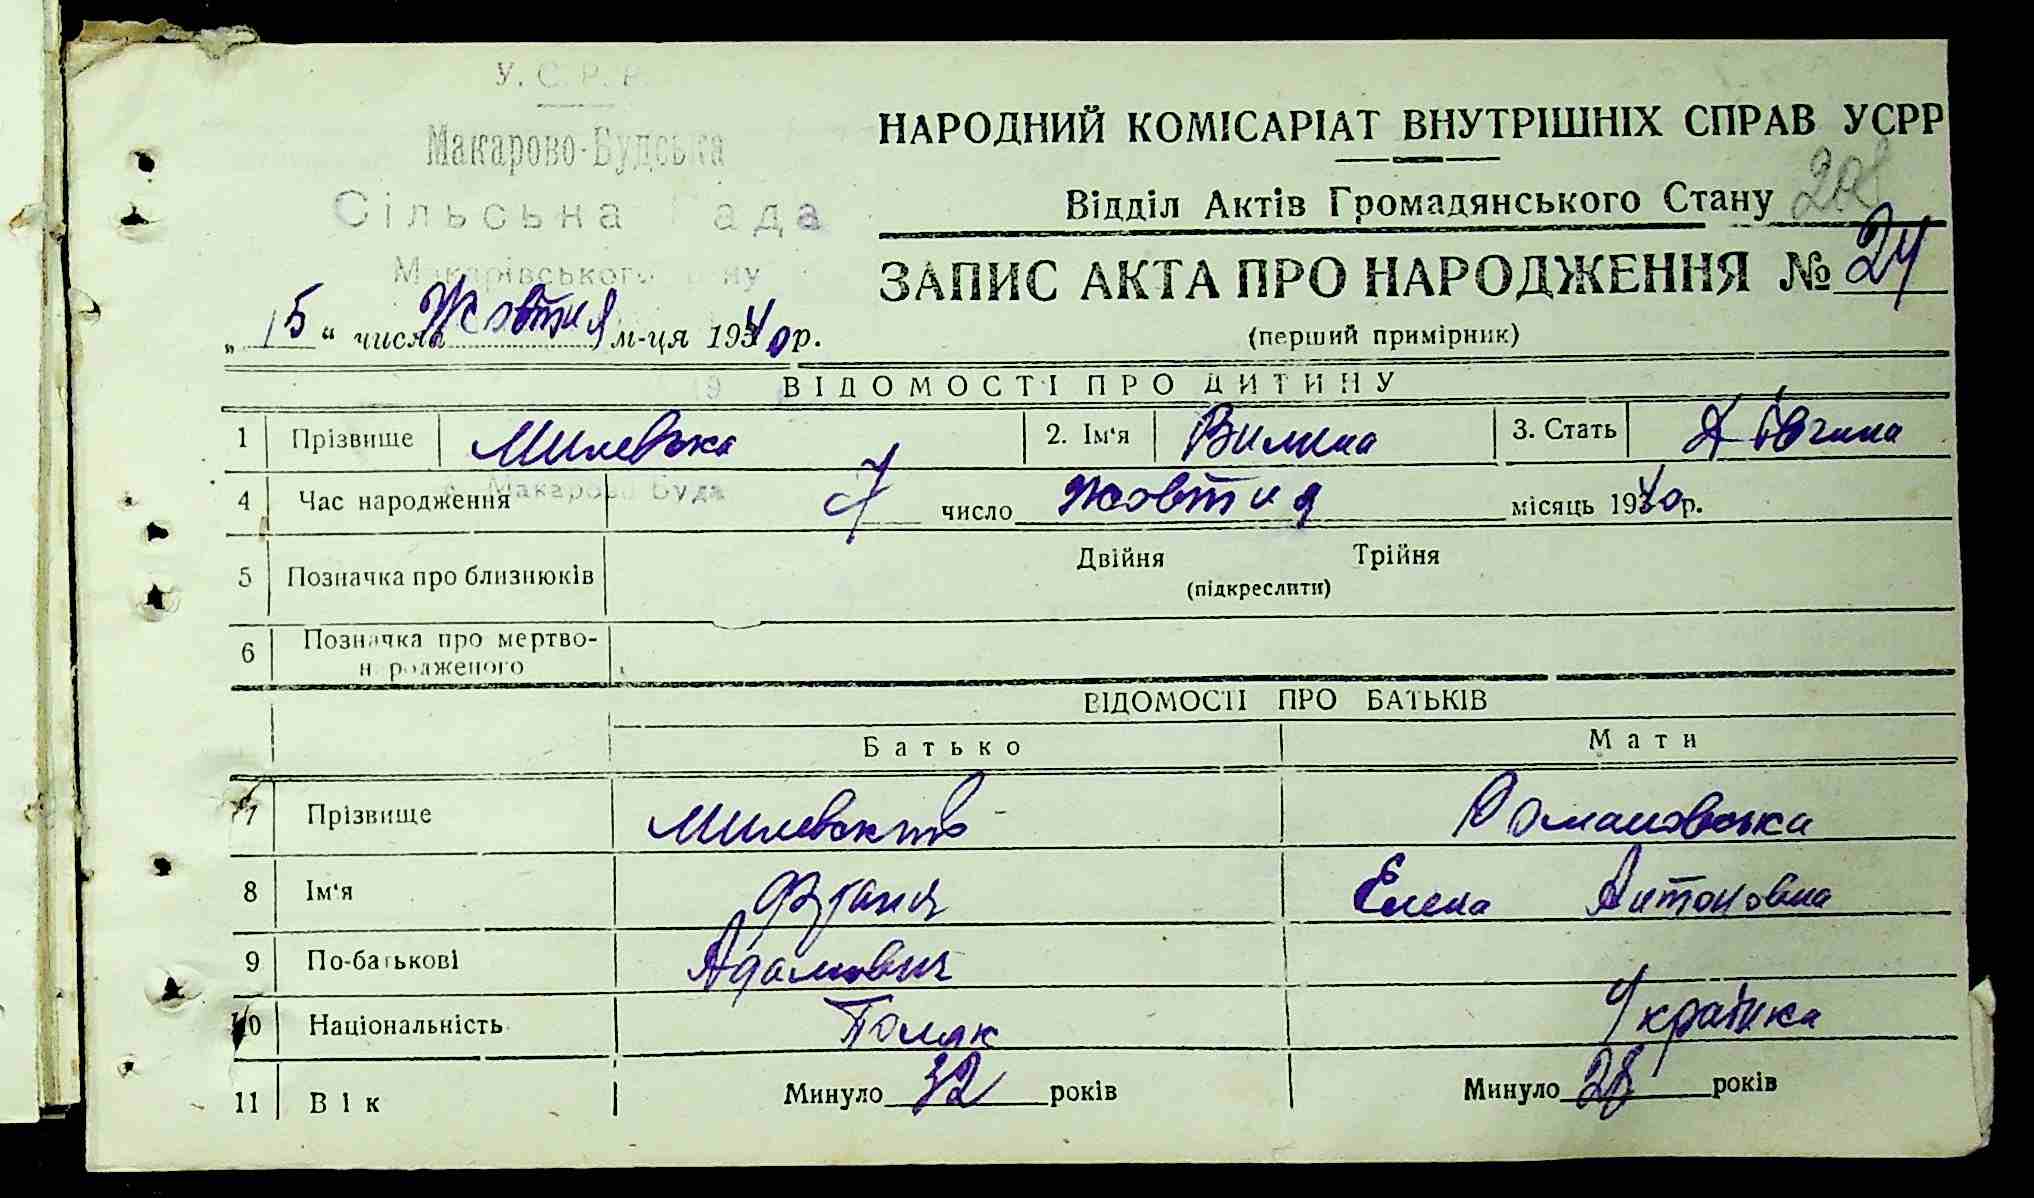 У. С. Р. Р.
Макарово-Будська
НАРОДНИЙ КОМІСАРІАТ ВНУТРІШНІХ СПРАВ УСРР
Сільська Рада
Відділ Актів Громадянського Стану
Макарівського
ЗАПИС АКТА ПРО НАРОДЖЕННЯ № 24
„15“ числа Жовтня м-ця 1940 р.
(перший примірник)
ВІДОМОСТІ ПРО ДИТИНУ
1 Прізвище Милевська 2. Ім'я Вилина 3. Стать Дівчина
с. Макарово Буда
4 Час народження 7 число Жовтня місяць 1940 р.
5 Позначка про близнюків Двійня Трійня
(підкреслити)
6 Позначка про мертво-
народженого
ВІДОМОСТІ ПРО БАТЬКІВ
Батько Мати
7 Прізвище Романовська
8 Ім'я Елена Антоновна
9 По-батькові Адамович
10 Національність Поляк Українка
11 Вік Минуло 32 років Минуло 28 років